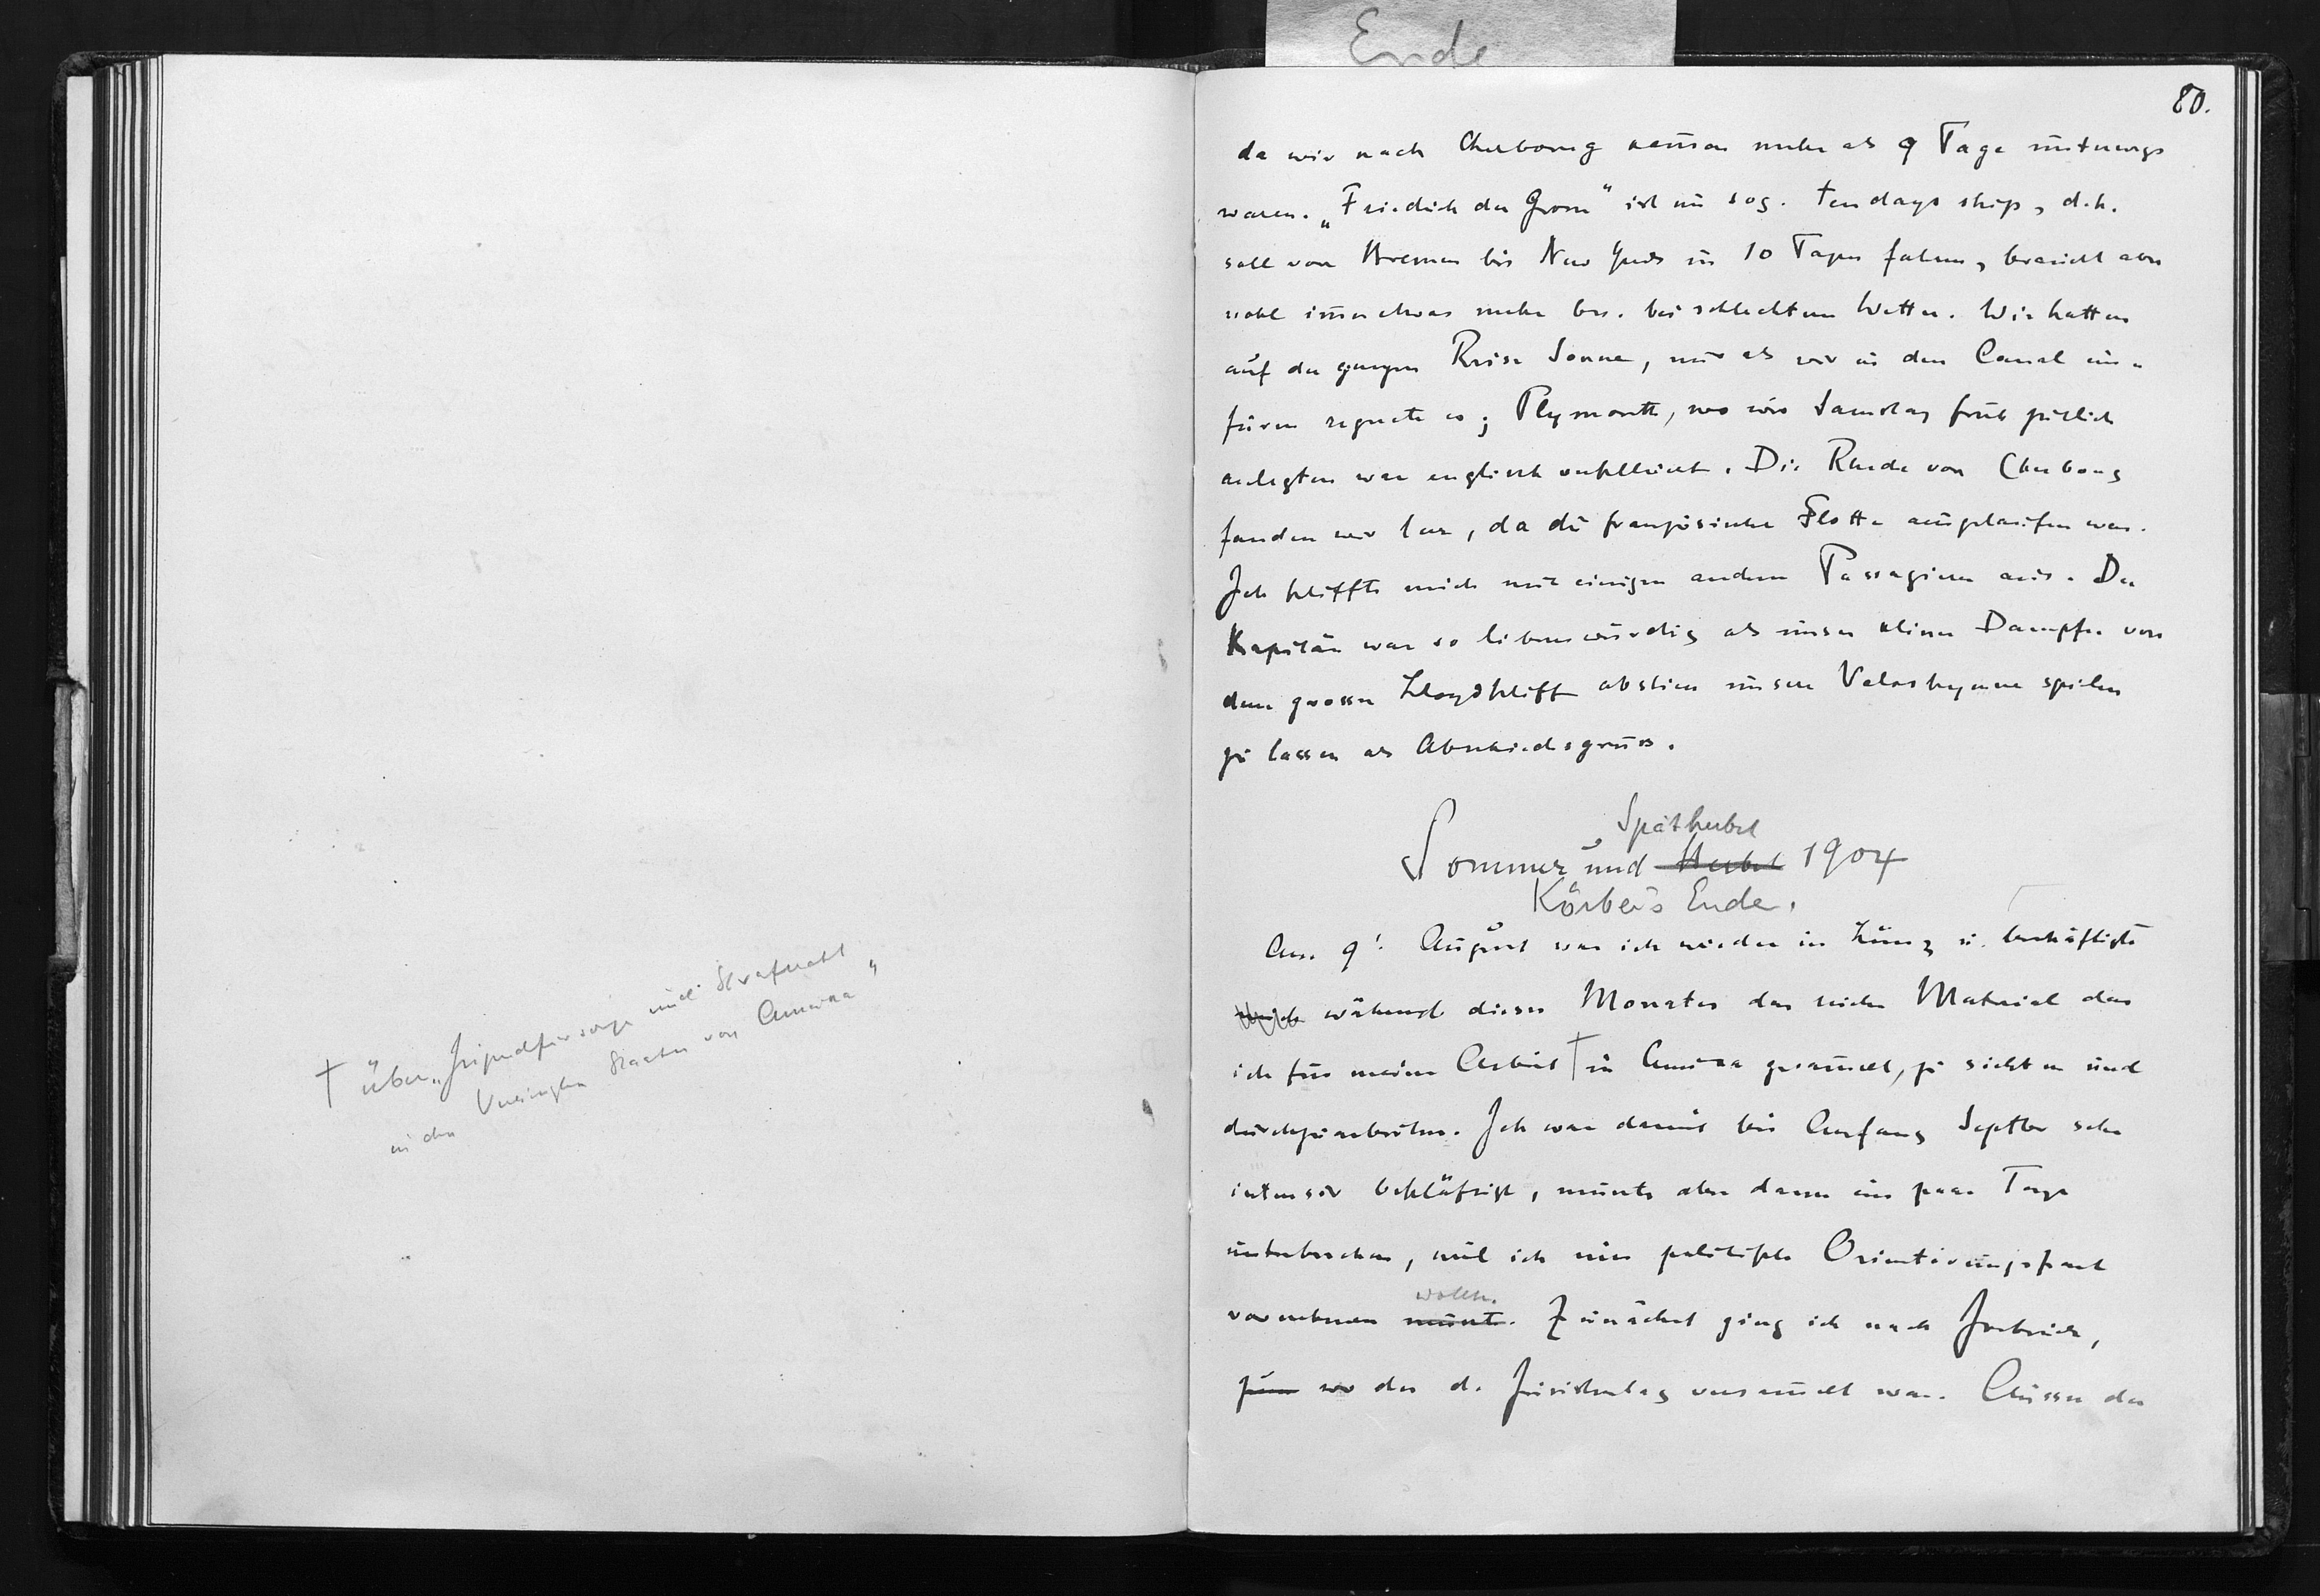 Ende
† über „Jugendfürsorge und Strafrecht
in den Vereinigten Staaten von Amerika"
80.
da wir nach Cherbourg kaum mehr als 9 Tage unterwegs
waren. „Friedrich der Grosse" ist ein sog. tendays ship, d.h.
soll von Bremen bis New York in 10 Tagen fahren, braucht aber
wohl immer etwas mehr bes. bei schlechtem Wetter. Wir hatten
auf der ganzen Reise Sonne, nur als wir in den Canal ein-
furen regnete es; Plymouth, wo wir Samstag früh
anlegten war englisch verschleiert. Die Rheede von Cherbourg
fanden wir leer, da die französische Flotte ausgelaufen war.
Ich schiffte mich mit einigen andern Passagieren aus. Der
Kapitän war so liebenswürdig als unser kleiner Dampfer von
dem grossen Lloydschiff abstiess unsere Volkshymne spielen
zu lassen als Abschiedsgruss.
Spätherbst
Sommer und Herbst 1904
Körbers Ende.
Am 9. August war ich wieder in Linz u. beschäftigte
mich während dieses Monates das reiche Material das
ich für meine Arbeit † in Amerika gesammelt, zu sichten und
durchzuarbeiten. Ich war damit bis Anfang Septbr sehr
intensiv beschäftigt, musste aber dann ein paar Tage
unterbrechen, weil ich eine politische Orientirungsfart
wollte.
vornehmen musste. Zunächst ging ich nach Insbruck,
zum wo der d. Juristentag versammelt war. Ausser der